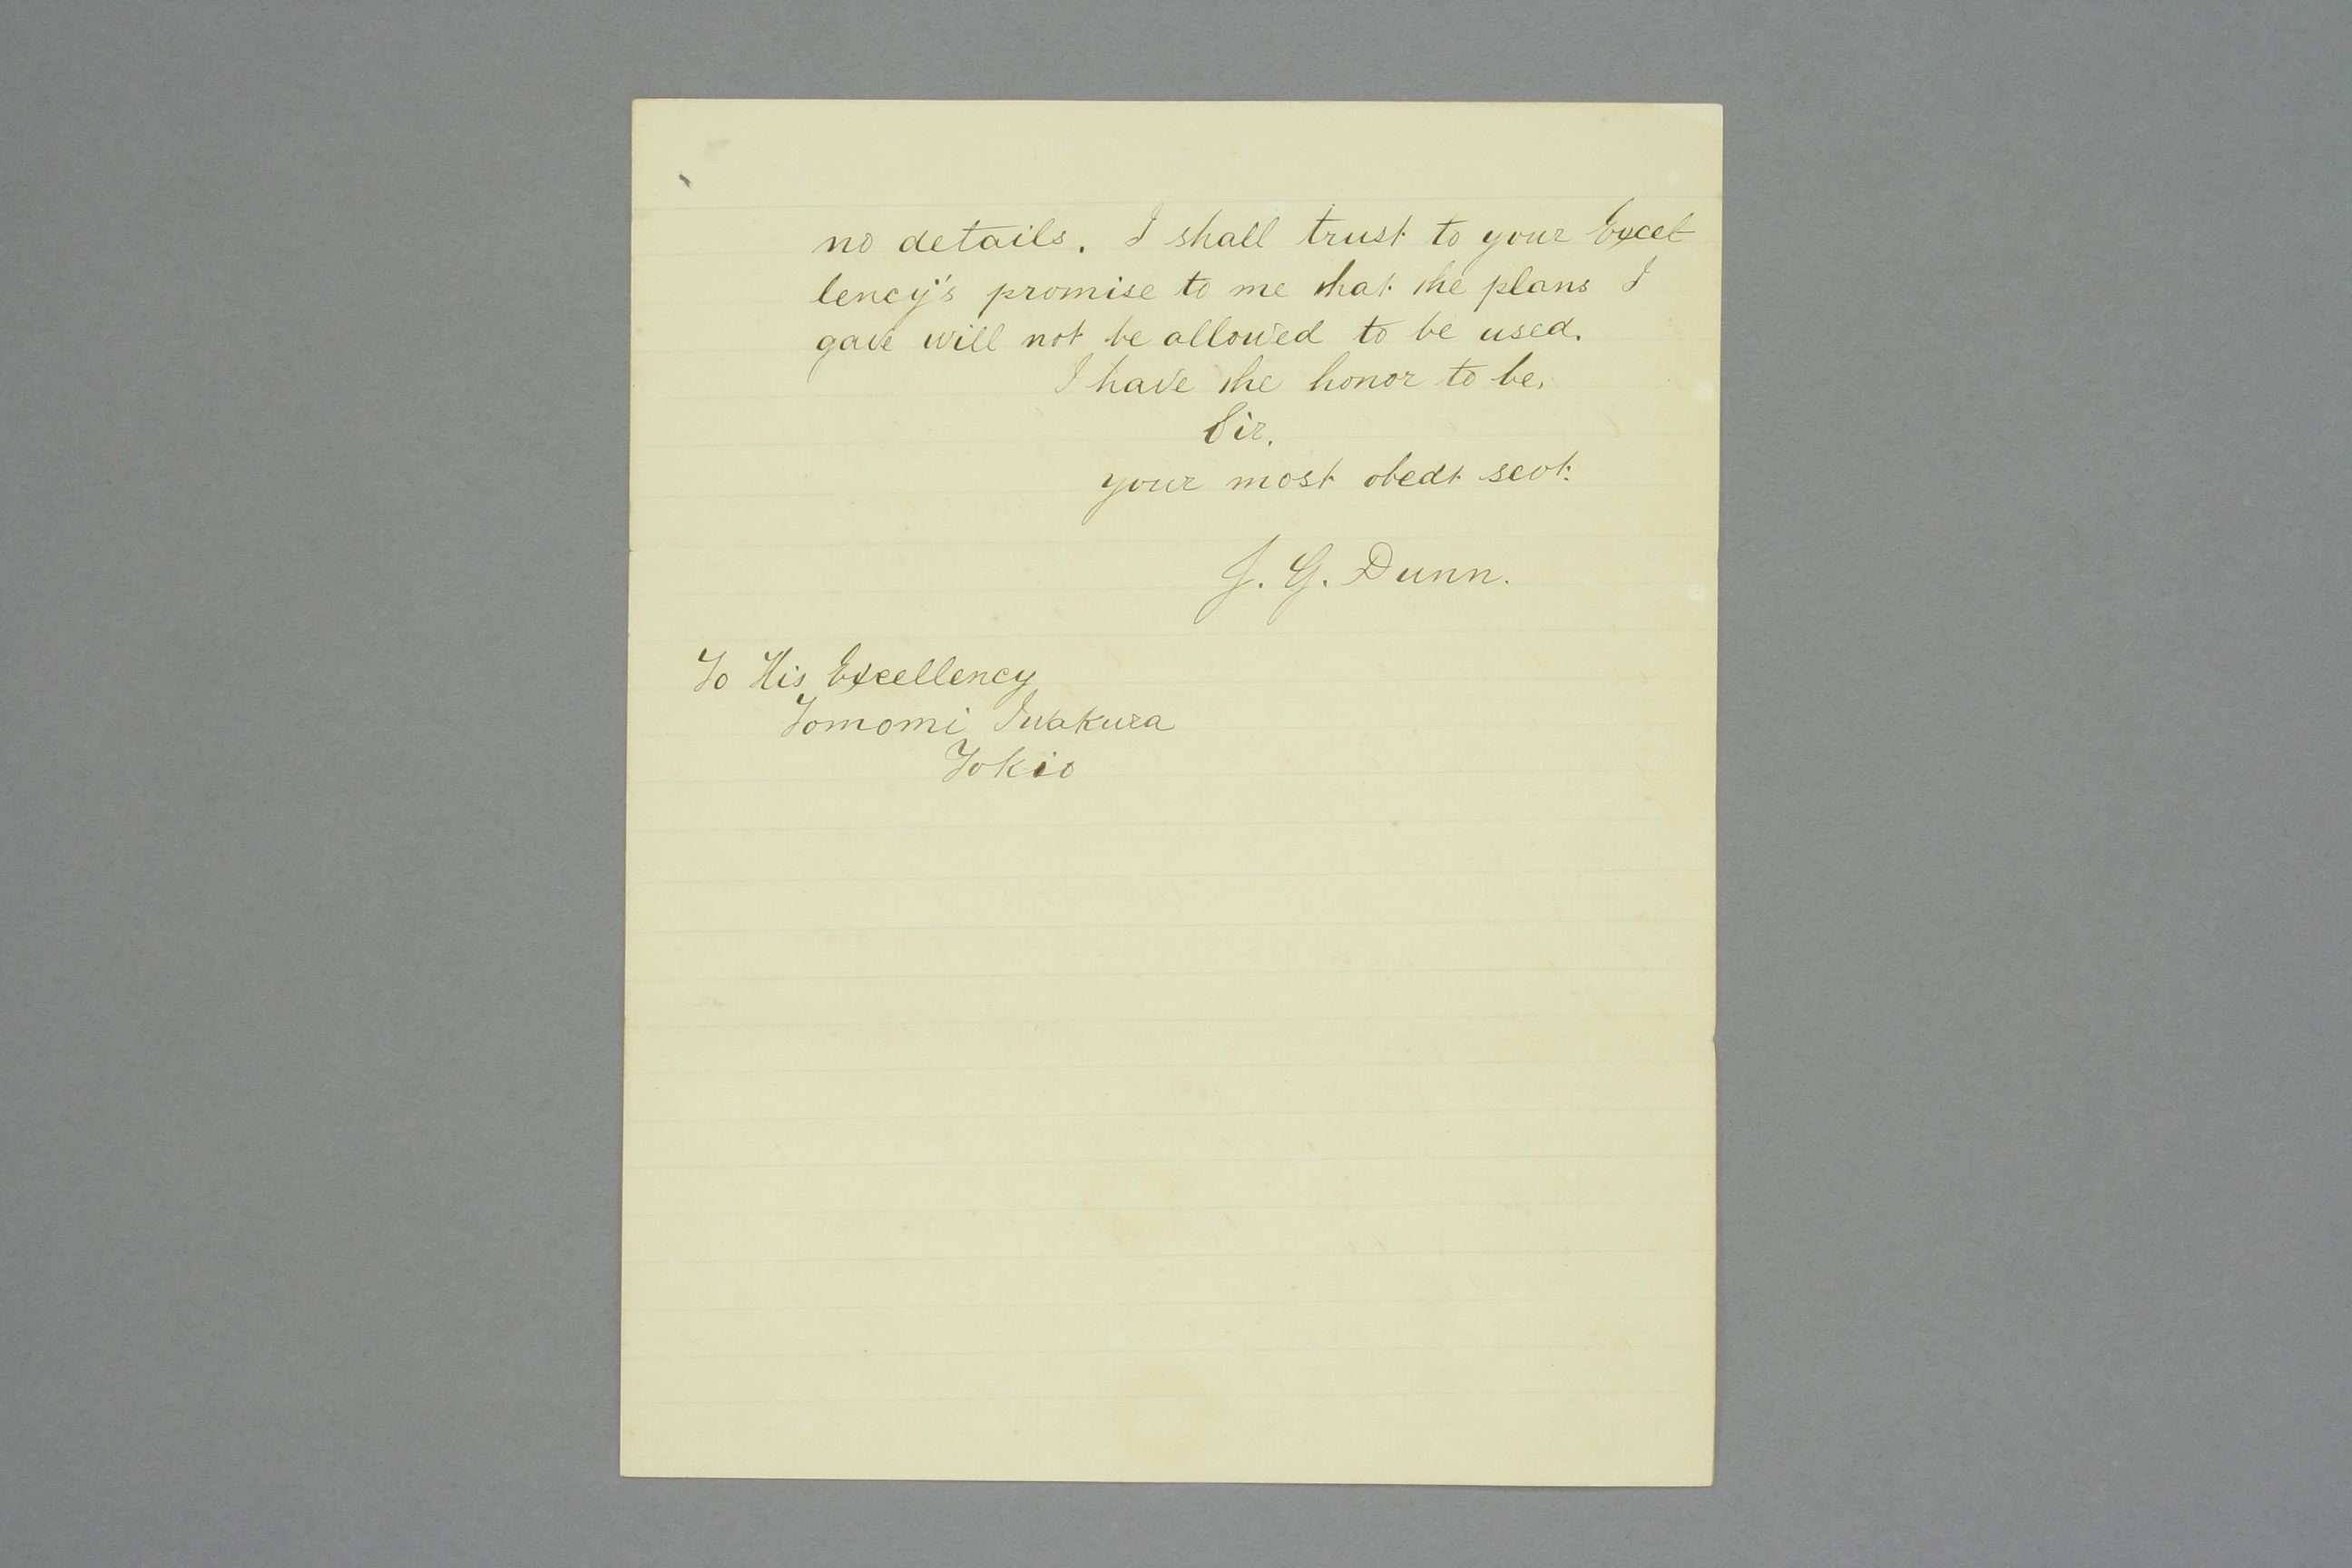 no details. I shall trust to your Excel
lency's promise to me that the plans I
gave will not be allowed to be used.
I have the honor to be,
Sir,
your most obedt servt.
J. G. Dunn.
To His Excellency
Tomomi Iwakura
Tokio